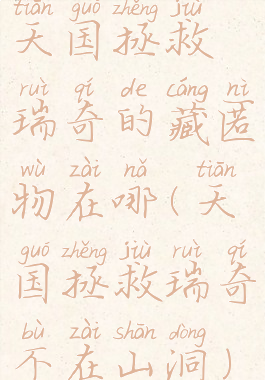 tiān guó zhěng jiù
天国拯救
ruì qí de cáng nì
瑞奇的藏匿
wù zài nǎ tiān
物在哪(天
guó zhěng jiù ruì qí
国拯救瑞奇
bù zài shān dòng
不在山洞)